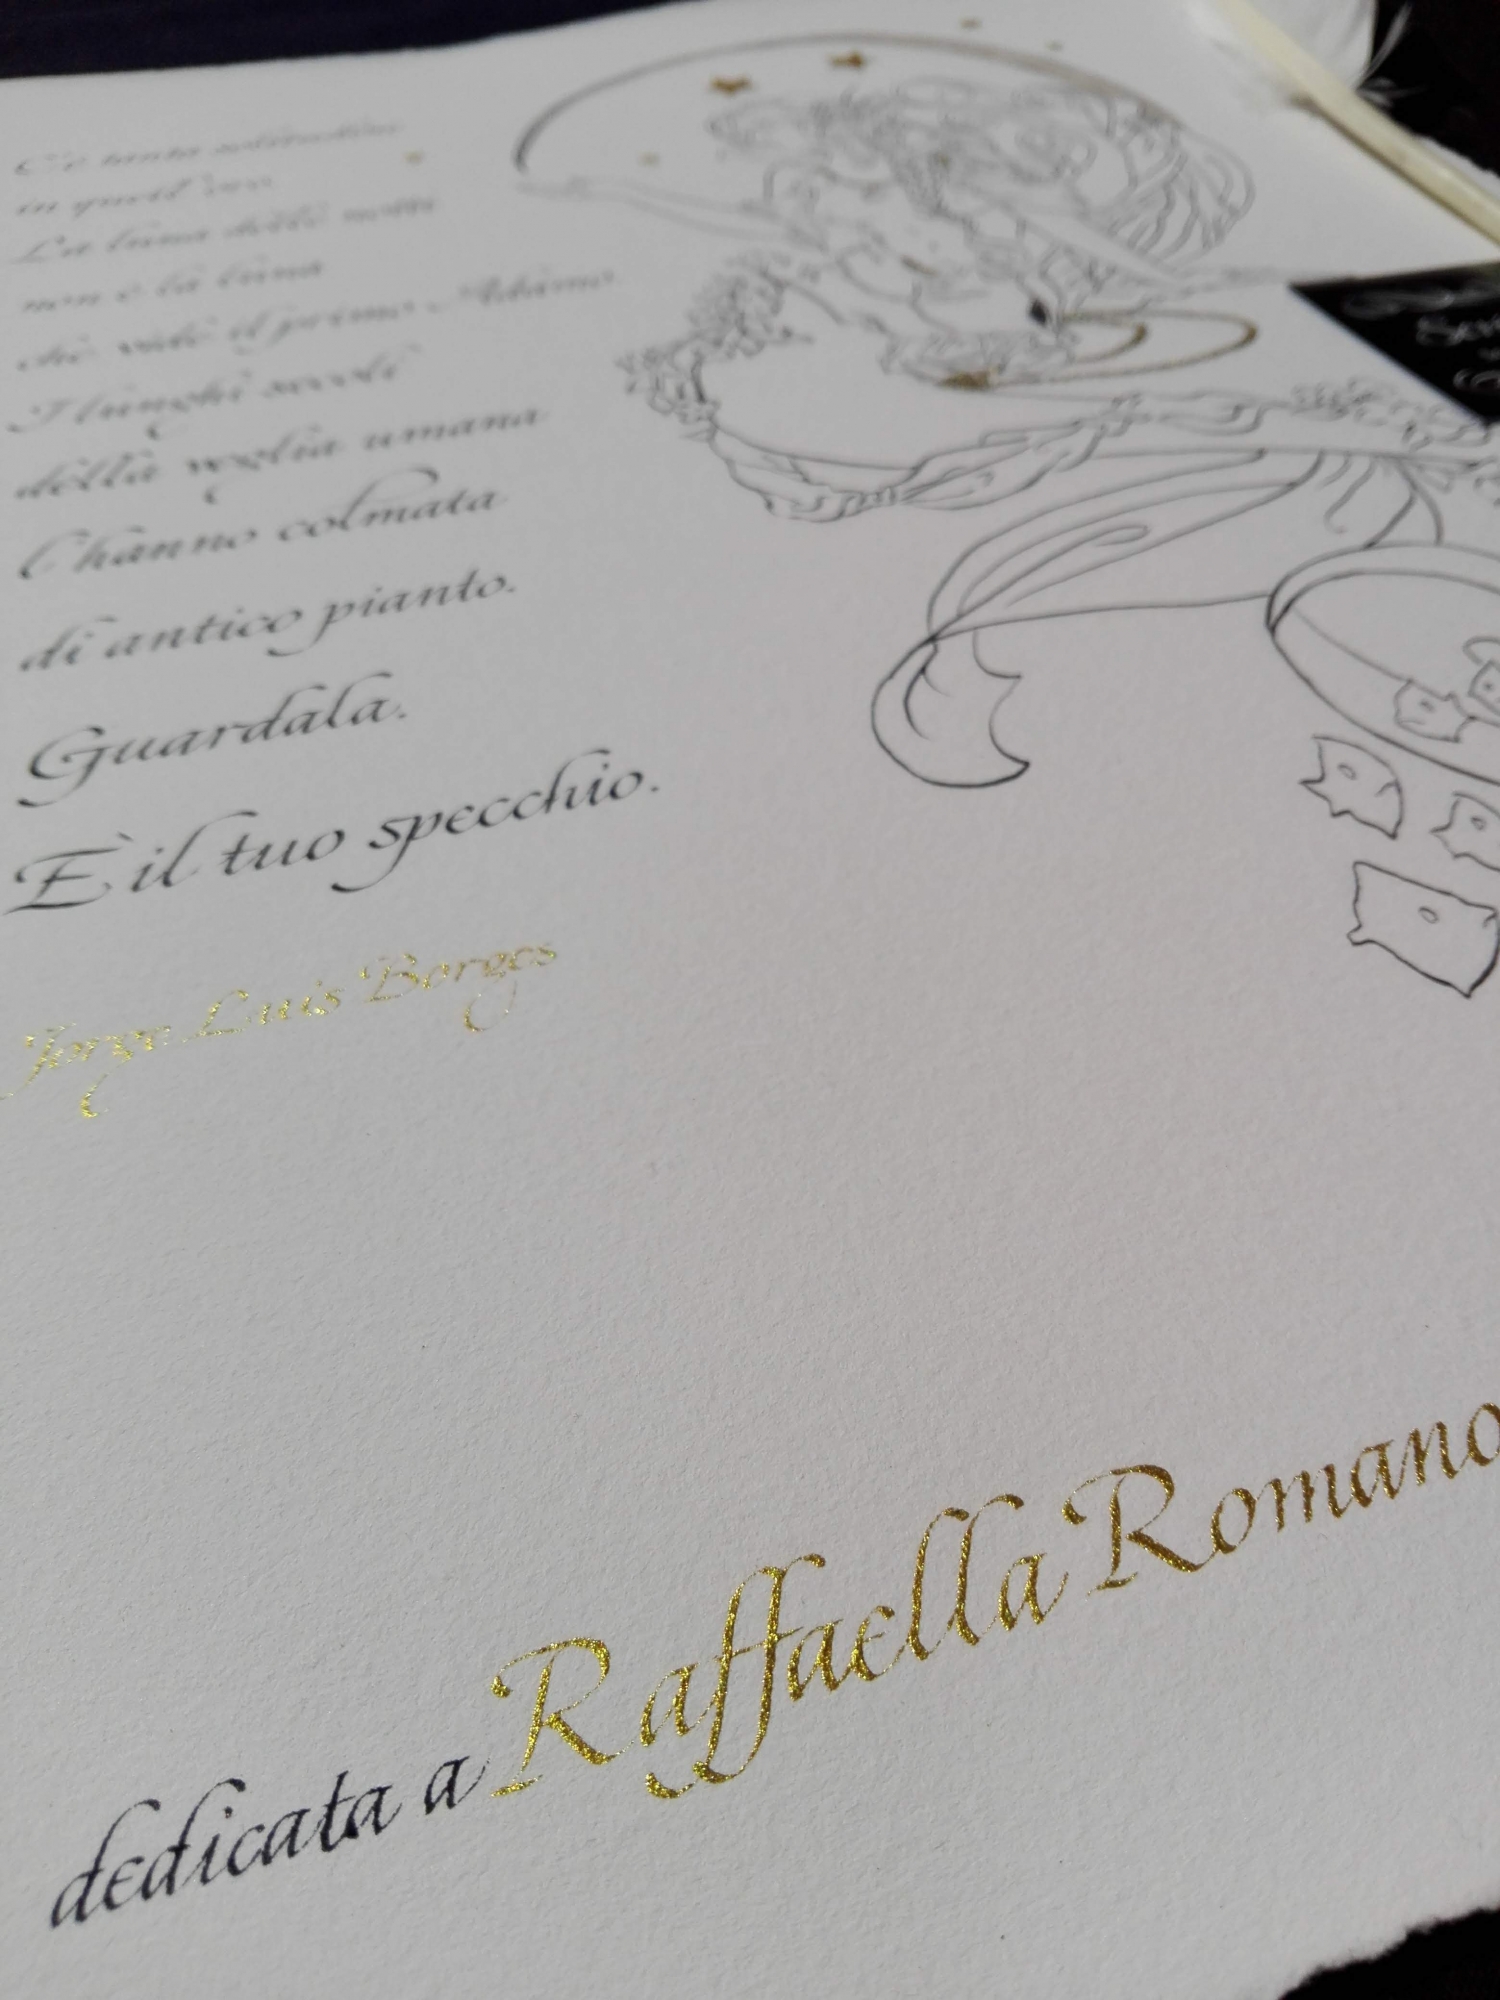 C'è tanta solitudine
in quell'oro.
La luna delle notti
non è la luna
che vide il primo Adamo.
I lunghi secoli
della veglia umana
l'hanno colmata
di antico pianto.
Guardala.
È il tuo specchio.
Jorge Luis Borges
dedicata a Raffaella Romano